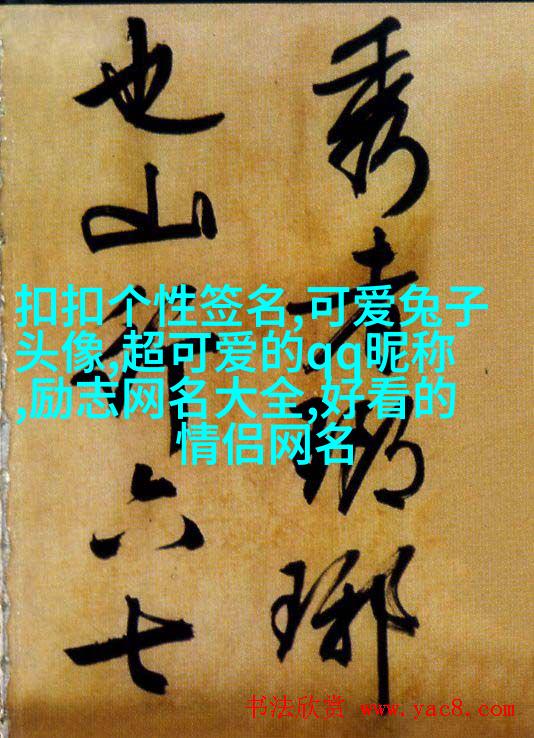 秀者瑯琊
也山行六七
扣扣个性签名,可爱兔子
头像,超可爱的qq昵称
,励志网名大全,好看的
情侣网名
书法欣赏 www.yac8.com